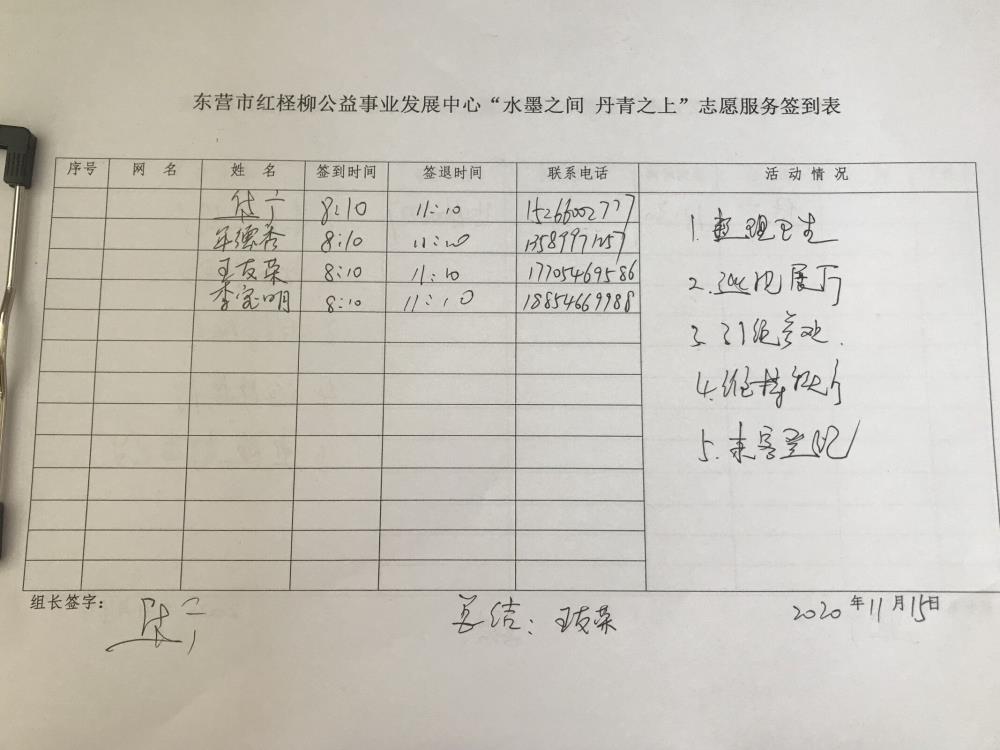 东营市红柽柳公益事业发展中心“水墨之间 丹青之上”志愿服务签到表
序号 网 名 姓 名 签到时间 签退时间 联系电话 活 动 情 况
8:10 11:10 15266002777
年德秀 8:10 11:10 13589971257
王友荣 8:10 11:10 17705469586
李宝明 8:10 11:10 18854669988
1. 整理卫生
2. 巡视展厅
3. 引领参观.
4. 维持秩序
5. 来客登记
组长签字: 总结: 王友荣 2020年11月15日